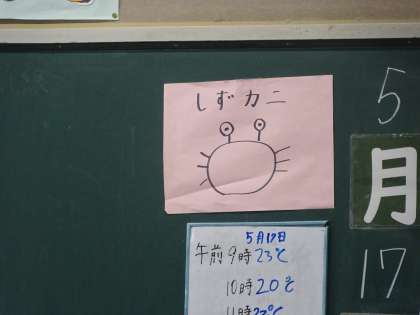 しずカニ
5
月
17
5月17日
午前9時23℃
10時20℃
11時23℃